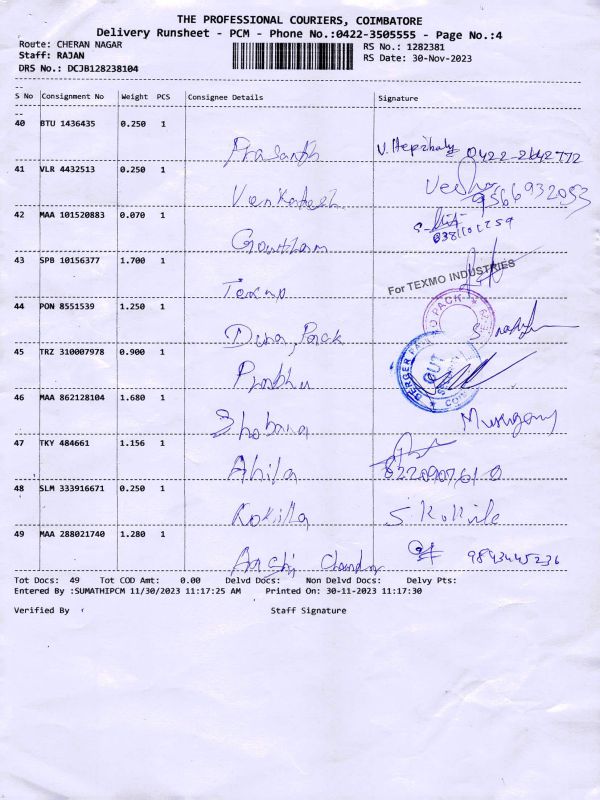 THE PROFESSIONAL COURIERS, COIMBATORE
Delivery Runsheet - PCM - Phone No.:0422-3505555 - Page No.:4
Route: CHERAN NAGAR RS No.: 1282381
Staff: RAJAN RS Date: 30-Nov-2023
DRS No.: DCJB128238104
S No Consignment No Weight PCS Consignee Details Signature
40 BTU 1436435 0.250 1
Prasanth V. Hepzibah 0422-2642772
41 VLR 4432513 0.250 1
Venkatesh 9566932053
42 MAA 101520883 0.070 1
Gowtham
43 SPB 10156377 1.700 1
Texmo For TEXMO INDUSTRIES
44 PON 8551539 1.250 1
Dura Pack
45 TRZ 310007978 0.900 1
Prabhu
46 MAA 862128104 1.680 1
Shobana
47 TKY 484661 1.156 1
Ahila
48 SLM 333916671 0.250 1
Kokilla S. Kokila
49 MAA 288021740 1.280 1
Chandr 9843445236
Tot Docs: 49 Tot COD Amt: 0.00 Delvd Docs: Non Delvd Docs: Delvy Pts:
Entered By :SUMATHIPCM 11/30/2023 11:17:25 AM Printed On: 30-11-2023 11:17:30
Verified By Staff Signature